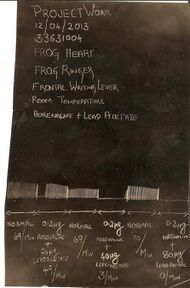 PROJECT WORK
12/04/2013
33631004
FROG HEART
FROG RINGER
FRONTAL WRITING LEVER
ROOM TEMPERATURE
ADRENALINE + LEAD ACETATE
NORMAL 0.2µg NORMAL 0.2µg NORMAL 0.2µg
69/MIN ADRENALINE 69/MIN ADRENALINE 70/MIN ADRENALINE
+ + +
LEAD ACETATE 40µg 80µg
49/MIN LEAD ACETATE LEAD ACETATE
3/MIN